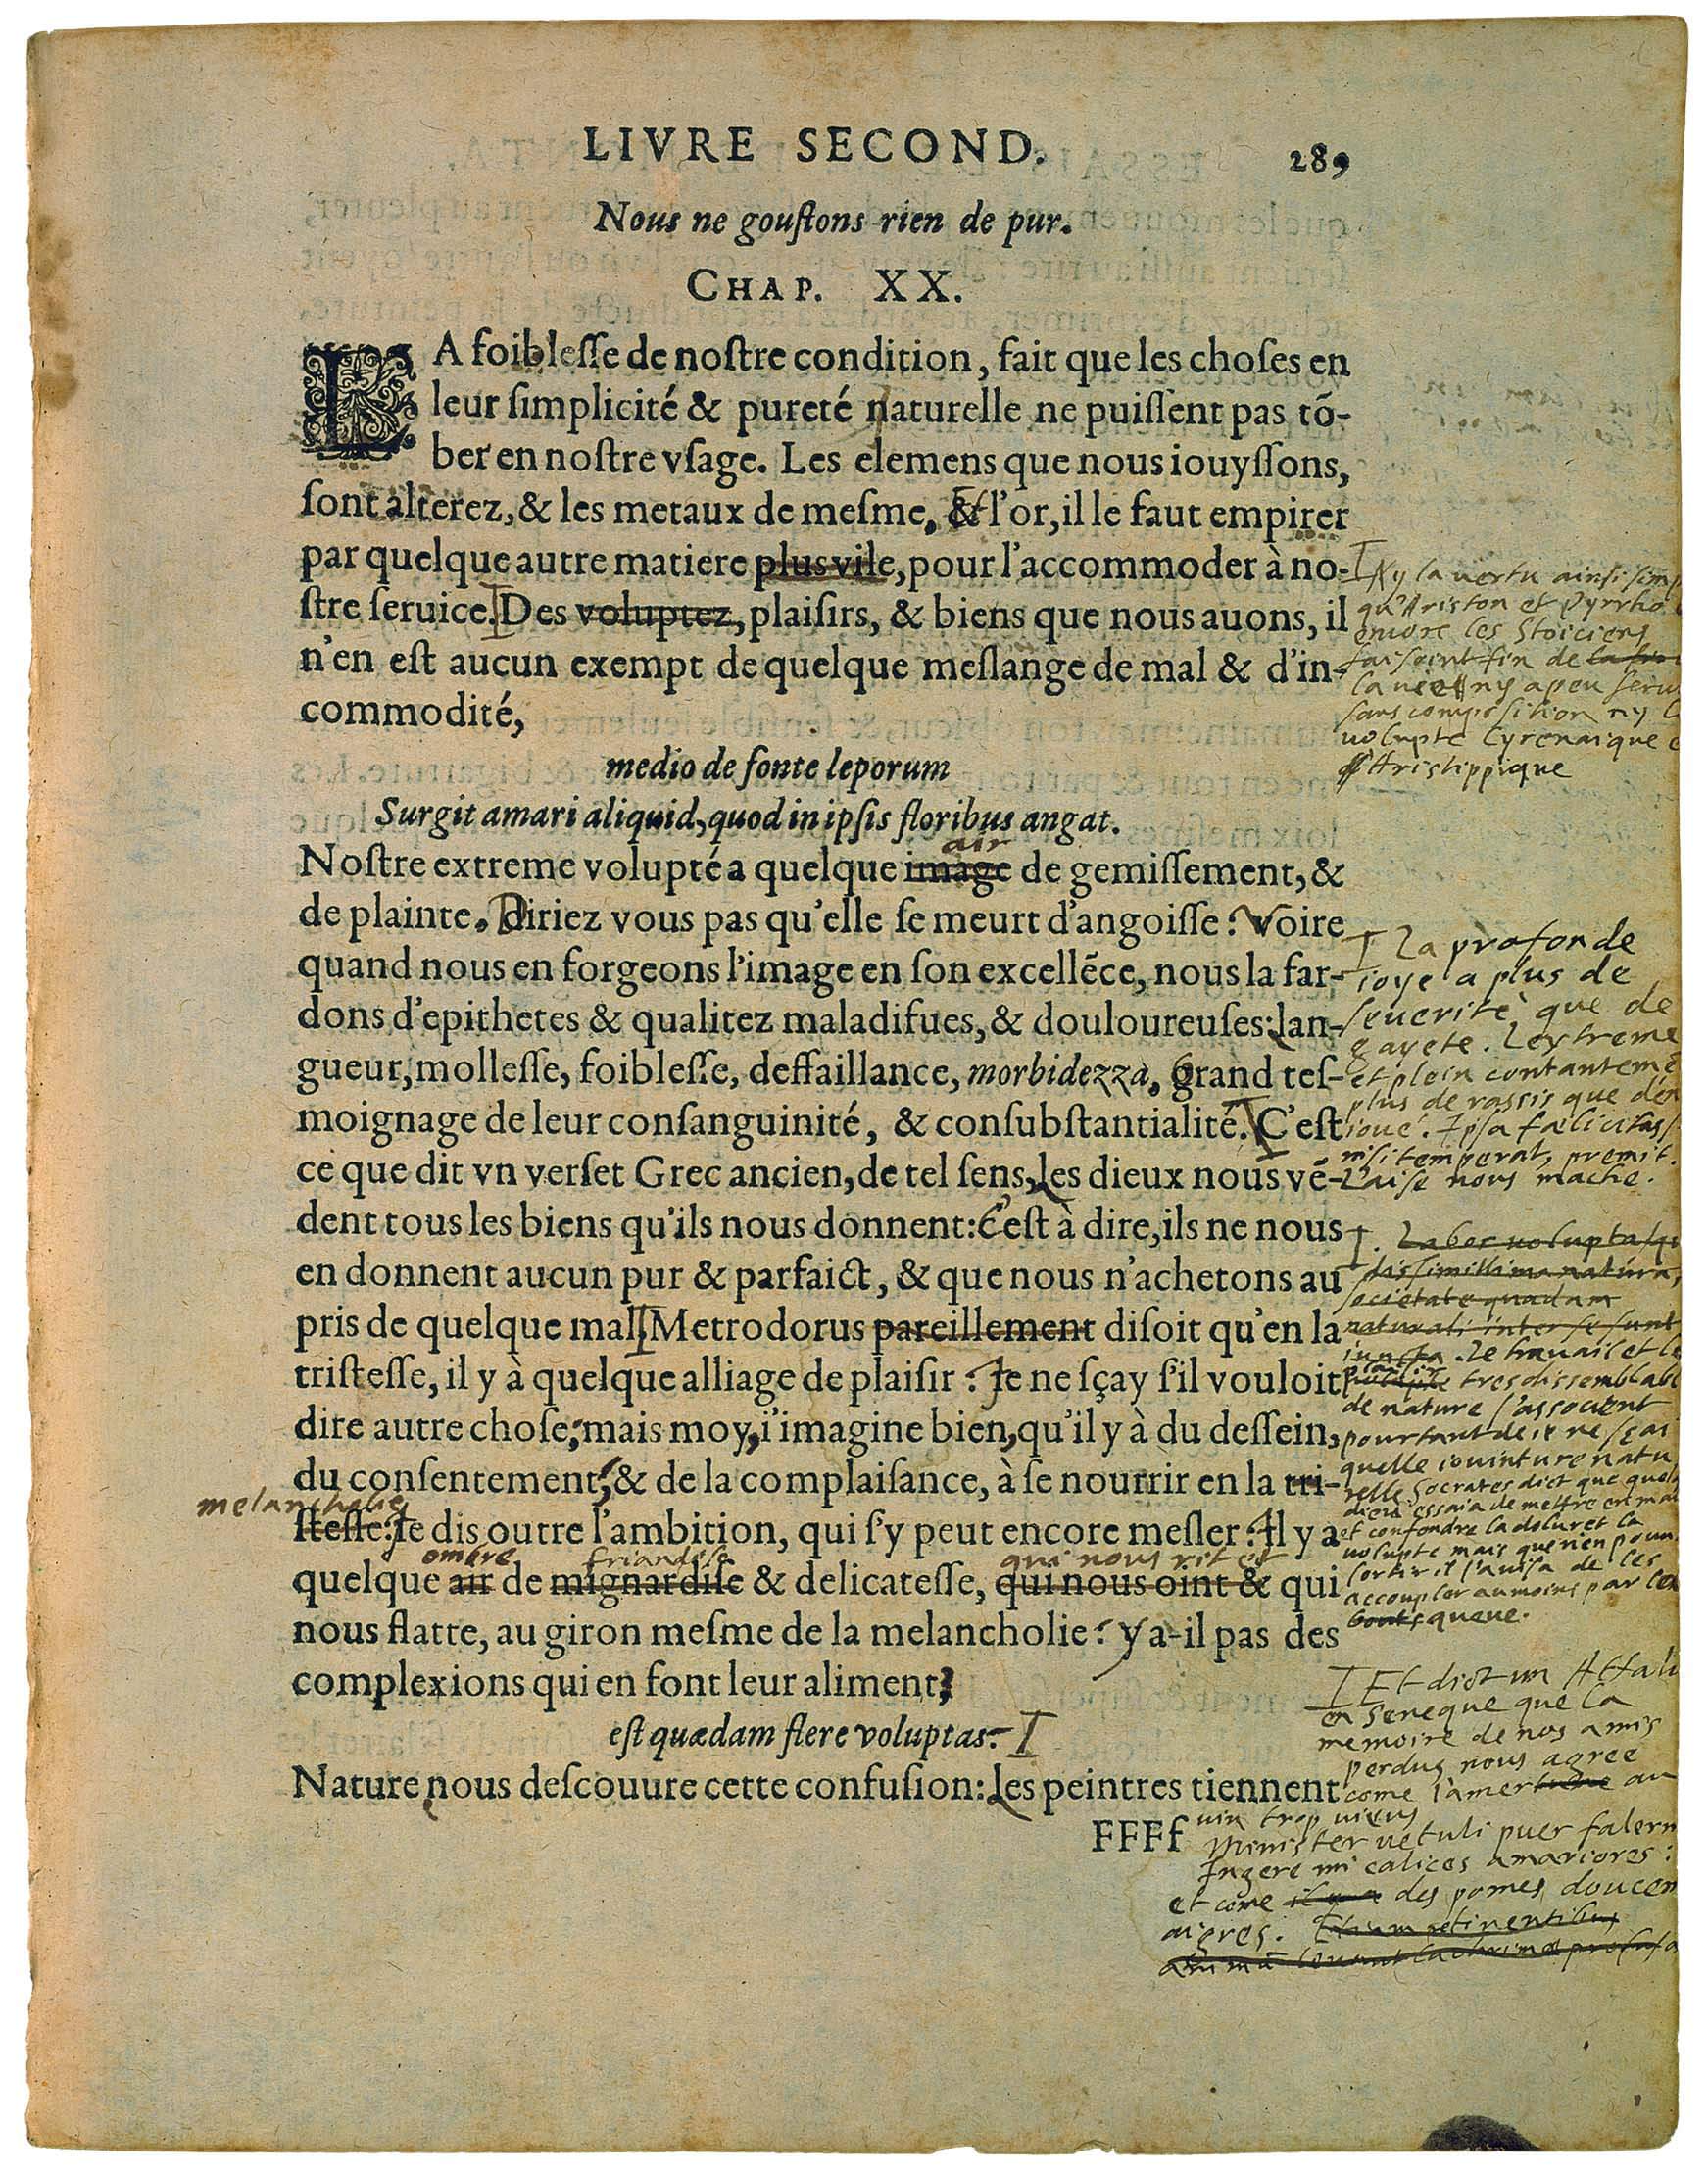 LIVRE SECOND. 289
Nous ne gouſtons rien de pur.
CHAP. XX.
LA foibleſſe de noſtre condition, fait que les choſes en
leur ſimplicité & pureté naturelle ne puiſſent pas tō-
ber en noſtre vſage. Les elemens que nous iouyſſons,
ſont alterez, & les metaux de meſme. Et l'or, il le faut empirer
par quelque autre matiere plus vile, pour l'accommoder à no-
ſtre ſeruice. Des voluptez, plaiſirs, & biens que nous auons, il
n'en eſt aucun exempt de quelque meſlange de mal & d'in-
commodité,
Ny la vertu ainsi simp
qu'Ariston et Pyrrho
encore les Stoiciens
faisoint fin de
la vie ny a peu seru
sans composition ny l
volupte Cyrenaique e
Aristippique
medio de fonte leporum
Surgit amari aliquid, quod in ipſis floribus angat.
air
Noſtre extreme volupté a quelque image de gemiſſement, &
de plainte. Diriez vous pas qu'elle ſe meurt d'angoiſſe? Voire
quand nous en forgeons l'image en ſon excellēce, nous la far-
dons d'epithetes & qualitez maladifues, & douloureuſes: lan-
gueur, molleſſe, foibleſſe, deffaillance, morbidezza. Grand teſ-
moignage de leur conſanguinité, & conſubſtantialité. C'eſt
ce que dit vn verſet Grec ancien, de tel ſens, Les dieux nous vē-
dent tous les biens qu'ils nous donnent: C'eſt à dire, ils ne nous
en donnent aucun pur & parfaict, & que nous n'achetons au
pris de quelque mal. Metrodorus pareillement diſoit qu'en la
triſteſſe, il y à quelque alliage de plaiſir: Je ne ſçay ſ'il vouloit
dire autre choſe; mais moy, i'imagine bien, qu'il y à du deſſein,
du conſentement, & de la complaiſance, à ſe nourrir en la tri-
melancholie
ſteſſe: Je dis outre l'ambition, qui ſ'y peut encore meſler: Il y a
ombre friandise qui nous rit et
quelque air de mignardiſe & delicateſſe, qui nous oint & qui
nous flatte, au giron meſme de la melancholie. Y a-il pas des
complexions qui en font leur aliment?
eſt quædam flere voluptas.
Nature nous deſcouure cette confuſion: Les peintres tiennent
FFFf
La profonde
ioye a plus de
severite que de
gayete. Lextreme
et plein contanteme
plus de rassis que den
ioué. Ipsa fælicitas s
nisi temperat, premit.
L'aise nous mache.
Labor voluptasq
dissimillima natura,
societate quadam
naturali inter se sunt
iuncta. Le travail et le
plaisir tresdissemblabl
de nature s'associent
pourtant de ie ne sçai
quelle iointure natu
relle Socrates dict que quel
dieu essaia de mettre en ma
et confondre la dolur et la
volupte mais que n'en pouv
sortir il s'avisa de les
accoupler aumoins par la
bouts queue.
Et dict un Attal
en Seneque que la
memoire de nos amis
perdus nous agree
come l'amer au
vin trop vieus
Minister vetuli puer falern
Ingere mi calices amariores:
et come il y a des pomes doucem
aigres.